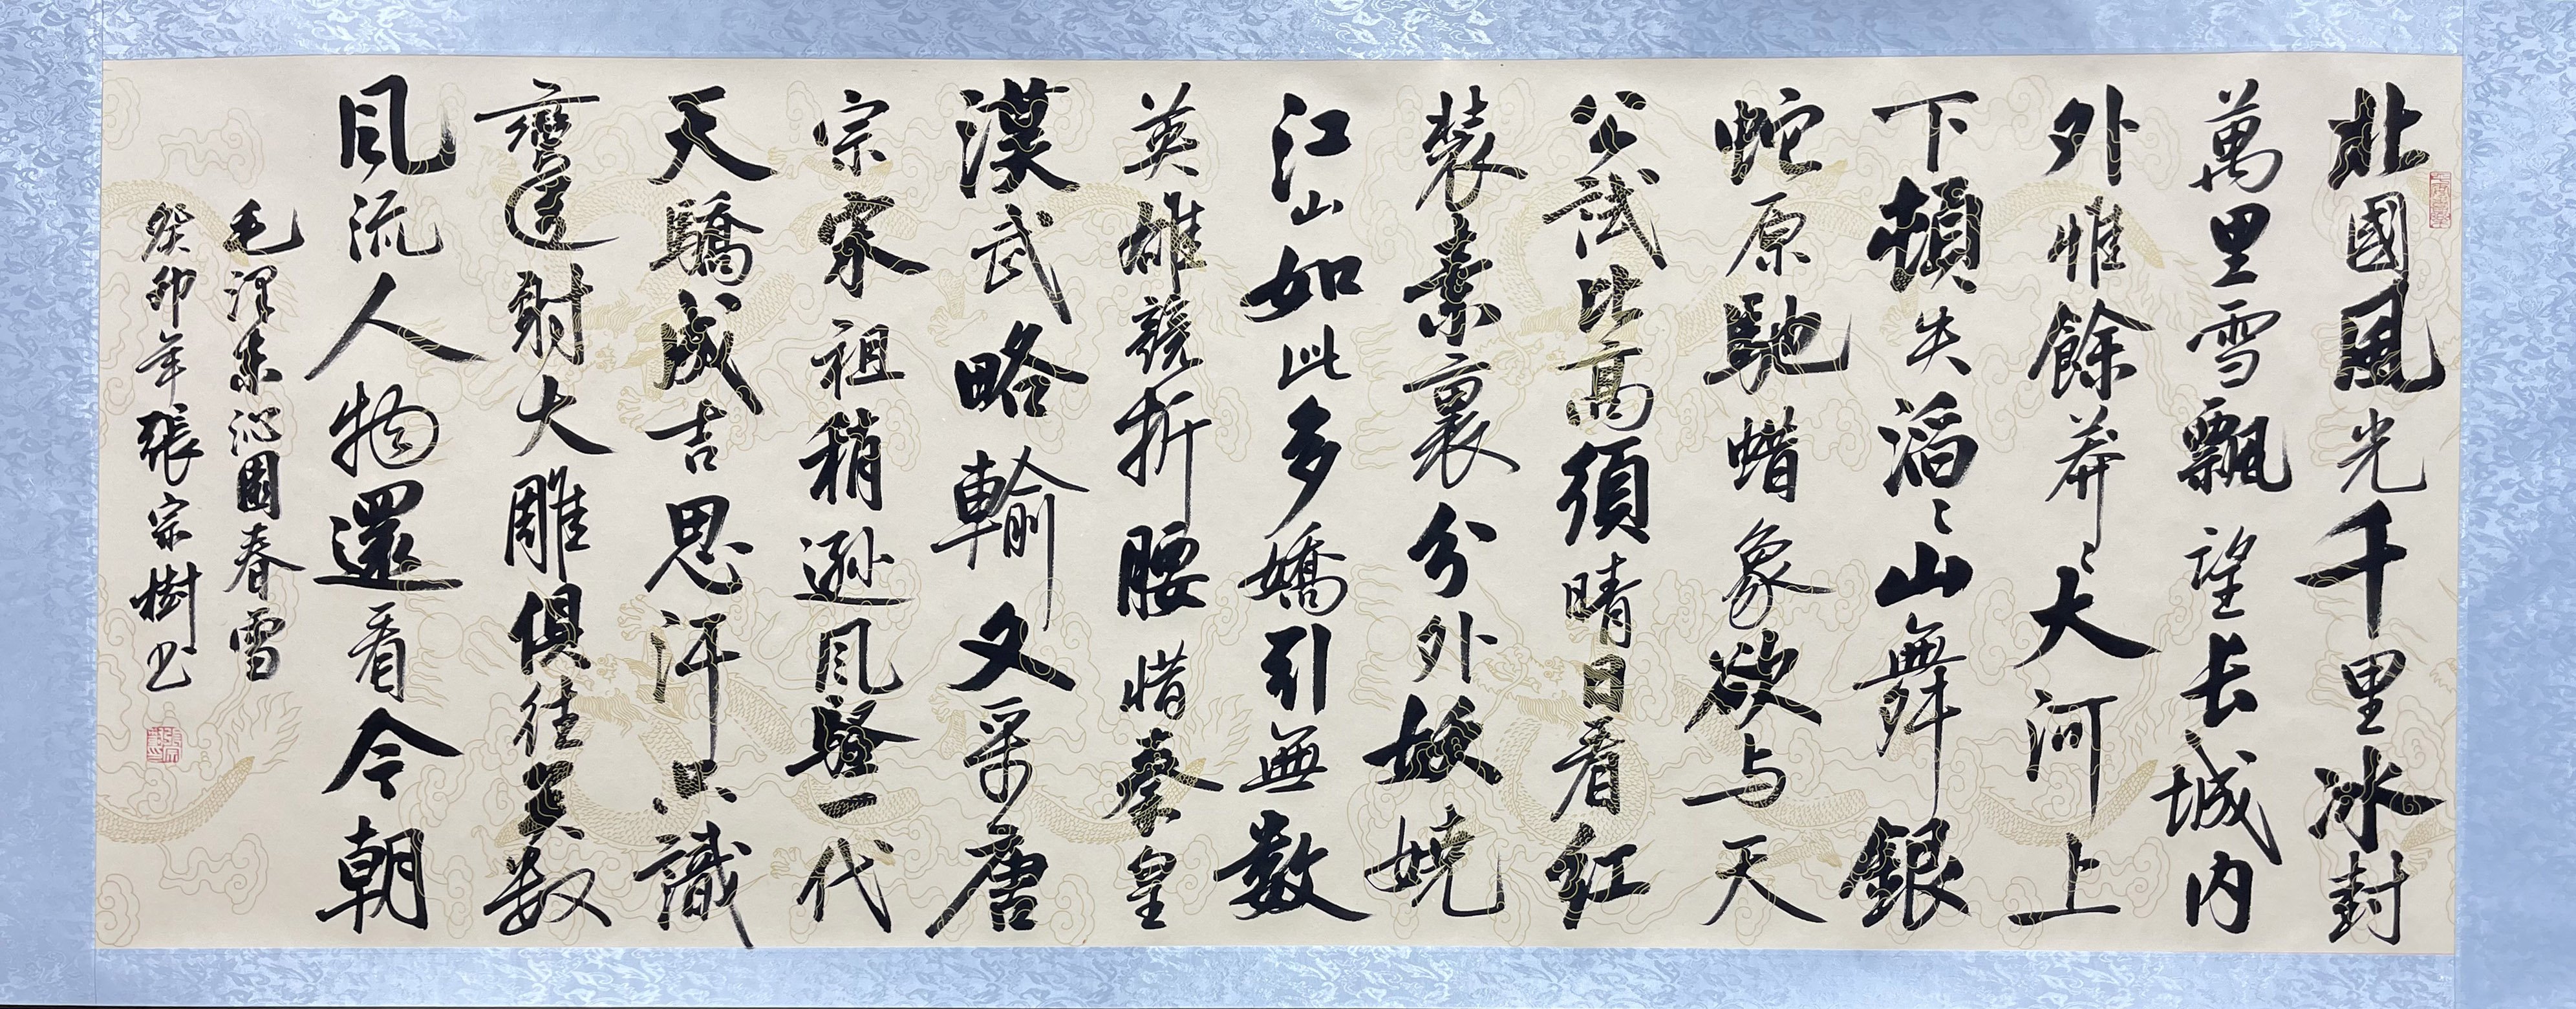 北國風光千里冰封
萬里雪飄望长城内
外惟餘莽〻大河上
下頓失滔〻山舞銀
蛇原馳蜡象欲与天
公試比高須晴日看红
裝素裹分外妖娆
江山如此多嬌引無数
英雄競折腰惜秦皇
漢武略輸文采唐
宗宋祖稍遜风騷一代
天驕成吉思汗只識
彎弓射大雕俱往矣数
风流人物還看今朝
毛澤东沁園春雪
癸卯年張宗樹书